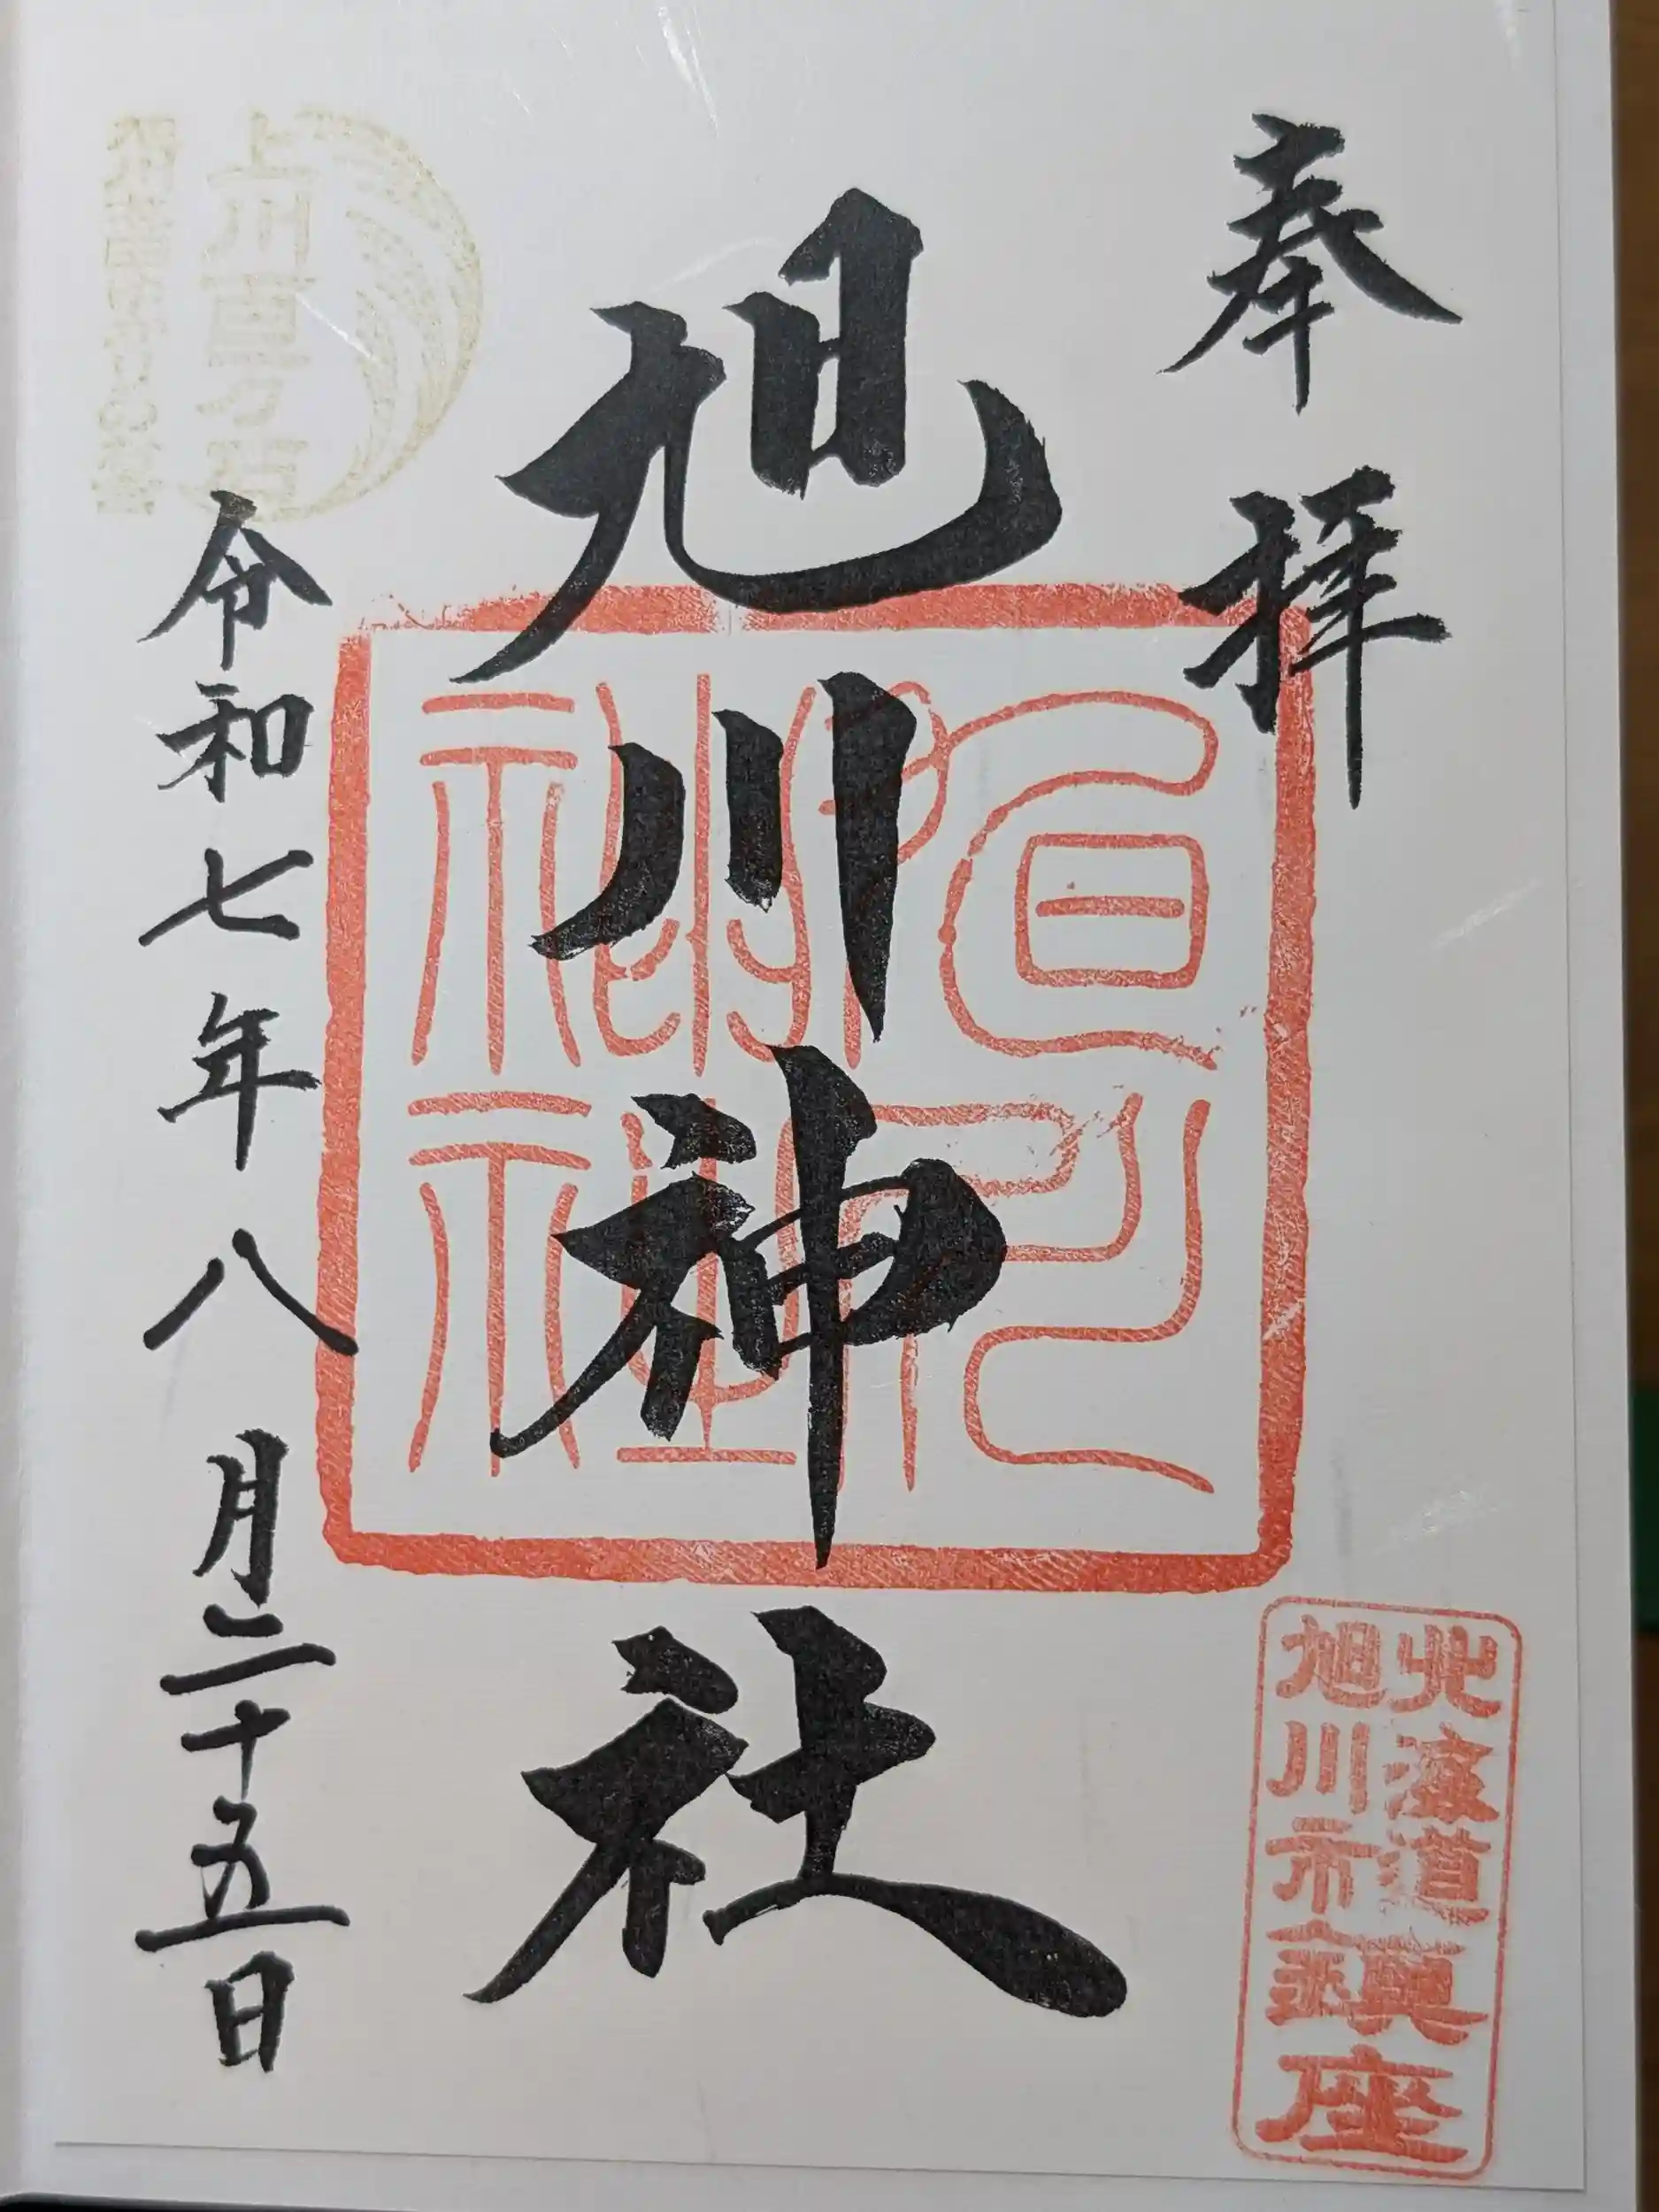 奉拝
旭川神社
旭川神社
北海道
旭川市
鎮座
上川百万石
令和七年八月二十五日